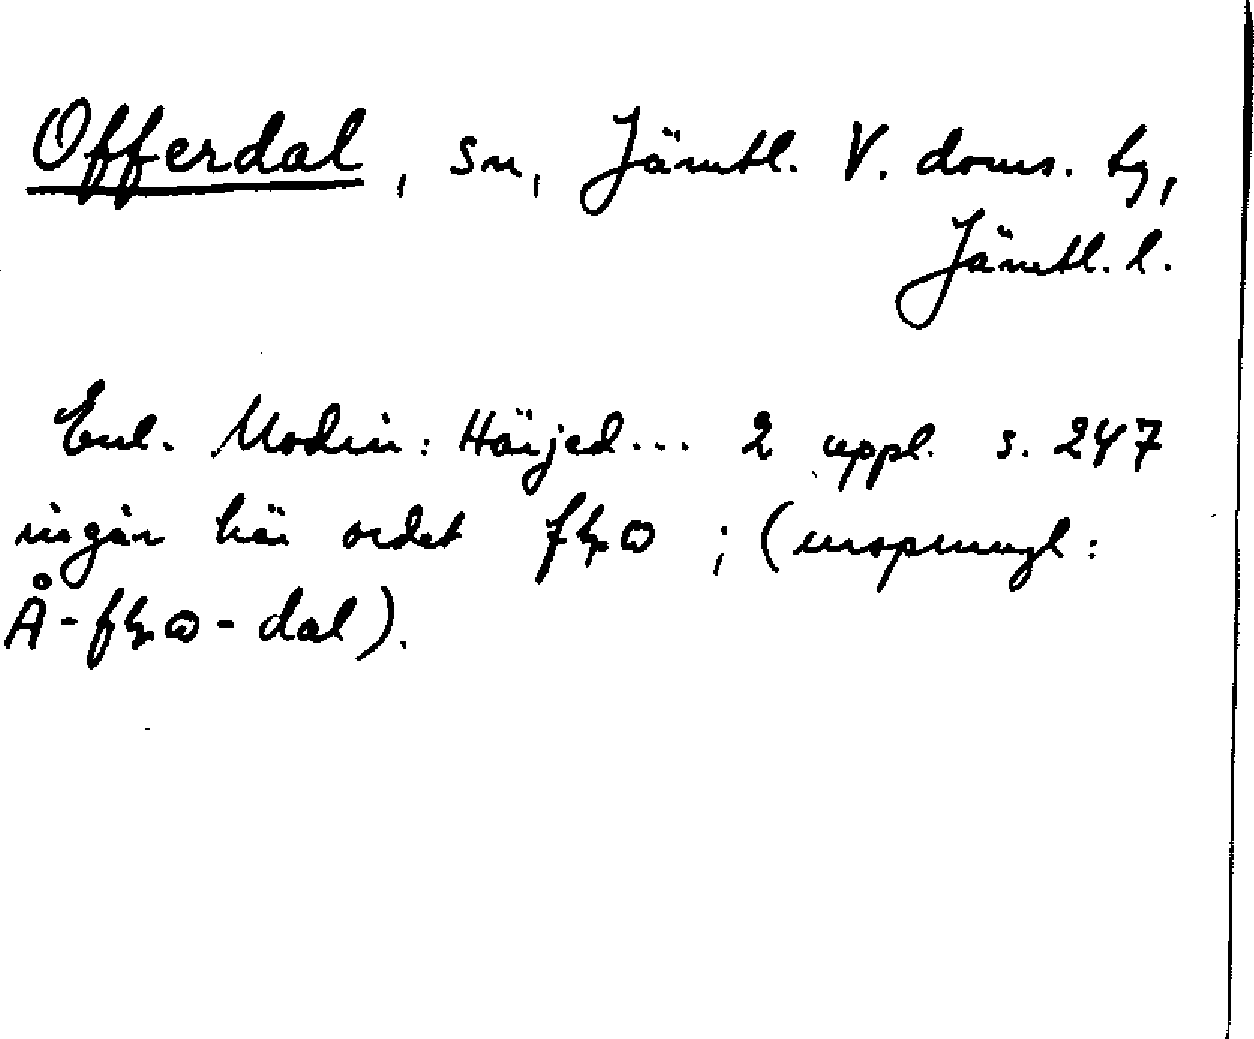 Offerdal, sn, Jämtl. V. doms. tg,
Jämtl. l.
Enl. Modin: Härjed... 2 uppl. s. 247
ingår här ordet ; (ursprungl:
Å- - dal).